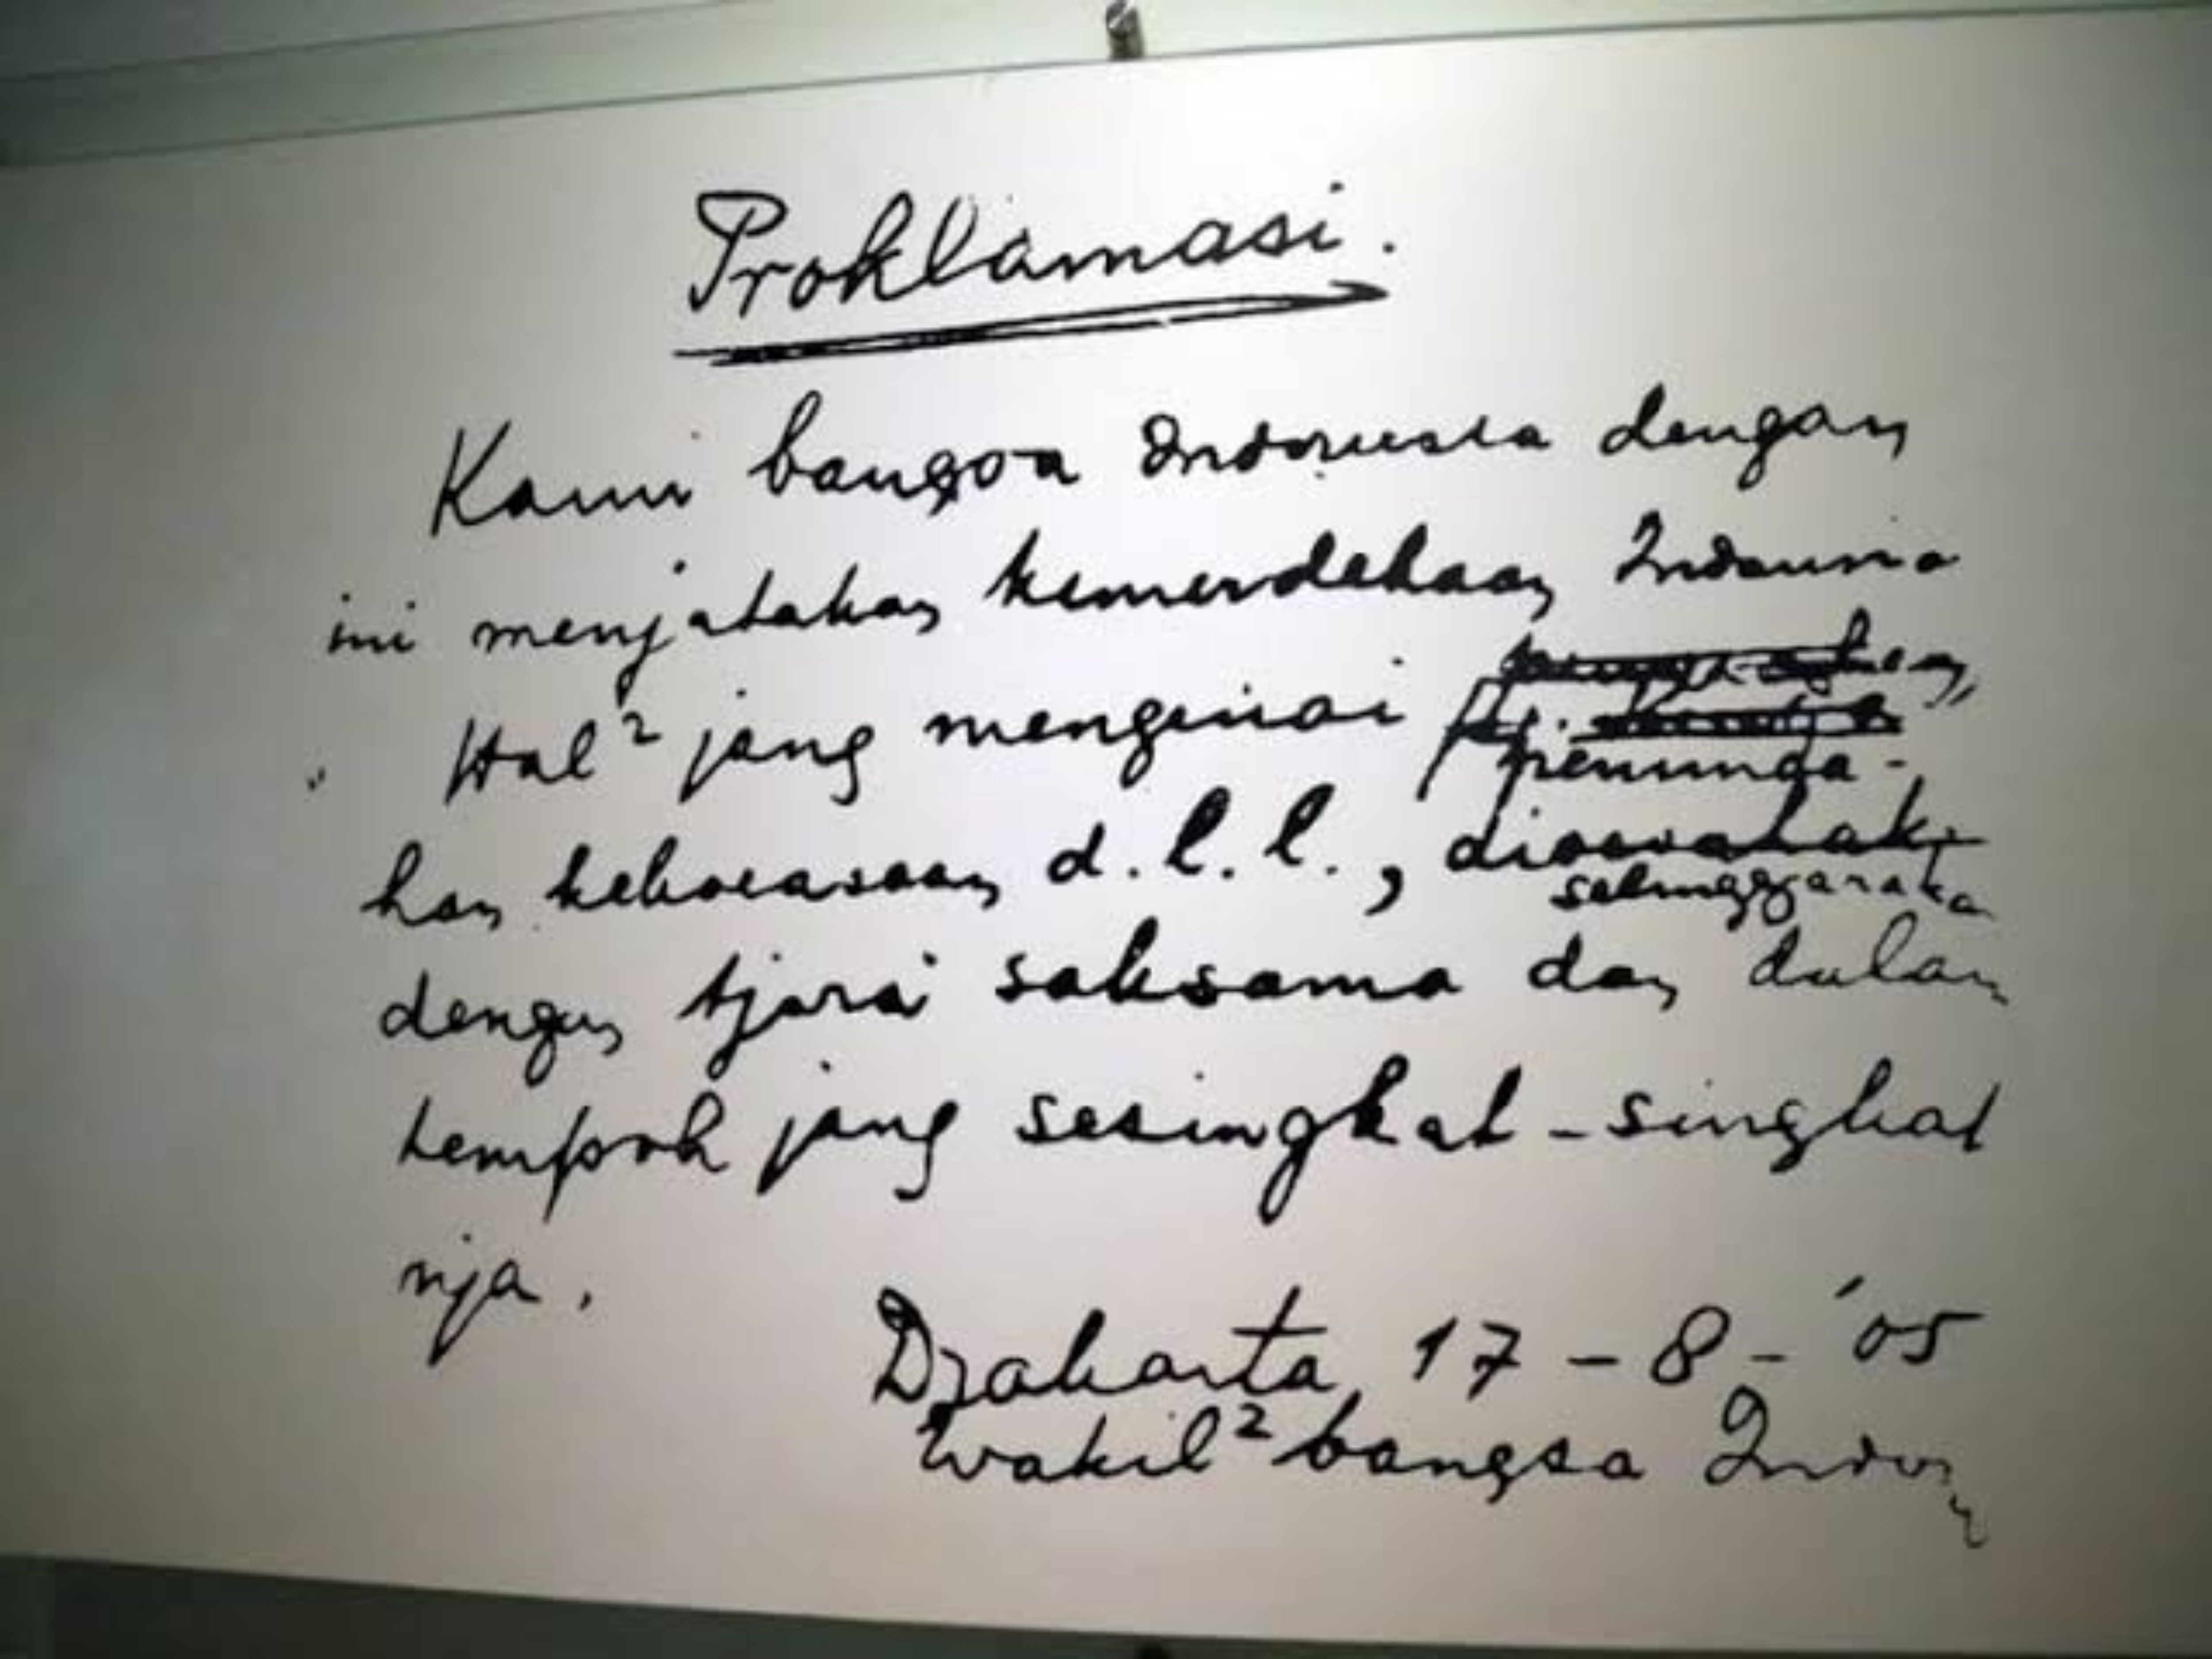 Proklamasi.
Kami bangsa Indonesia dengan
ini menjatakan kemerdekaan Indonesia
Hal² jang mengenai
peminda-
han kekoeasaan d.l.l., dioesahak
selenggaraka
dengan tjara saksama dan dalam
tempoh jang sesingkat-singkat
nja.
Djakarta, 17 - 8 - '05
Wakil² bangsa Indon